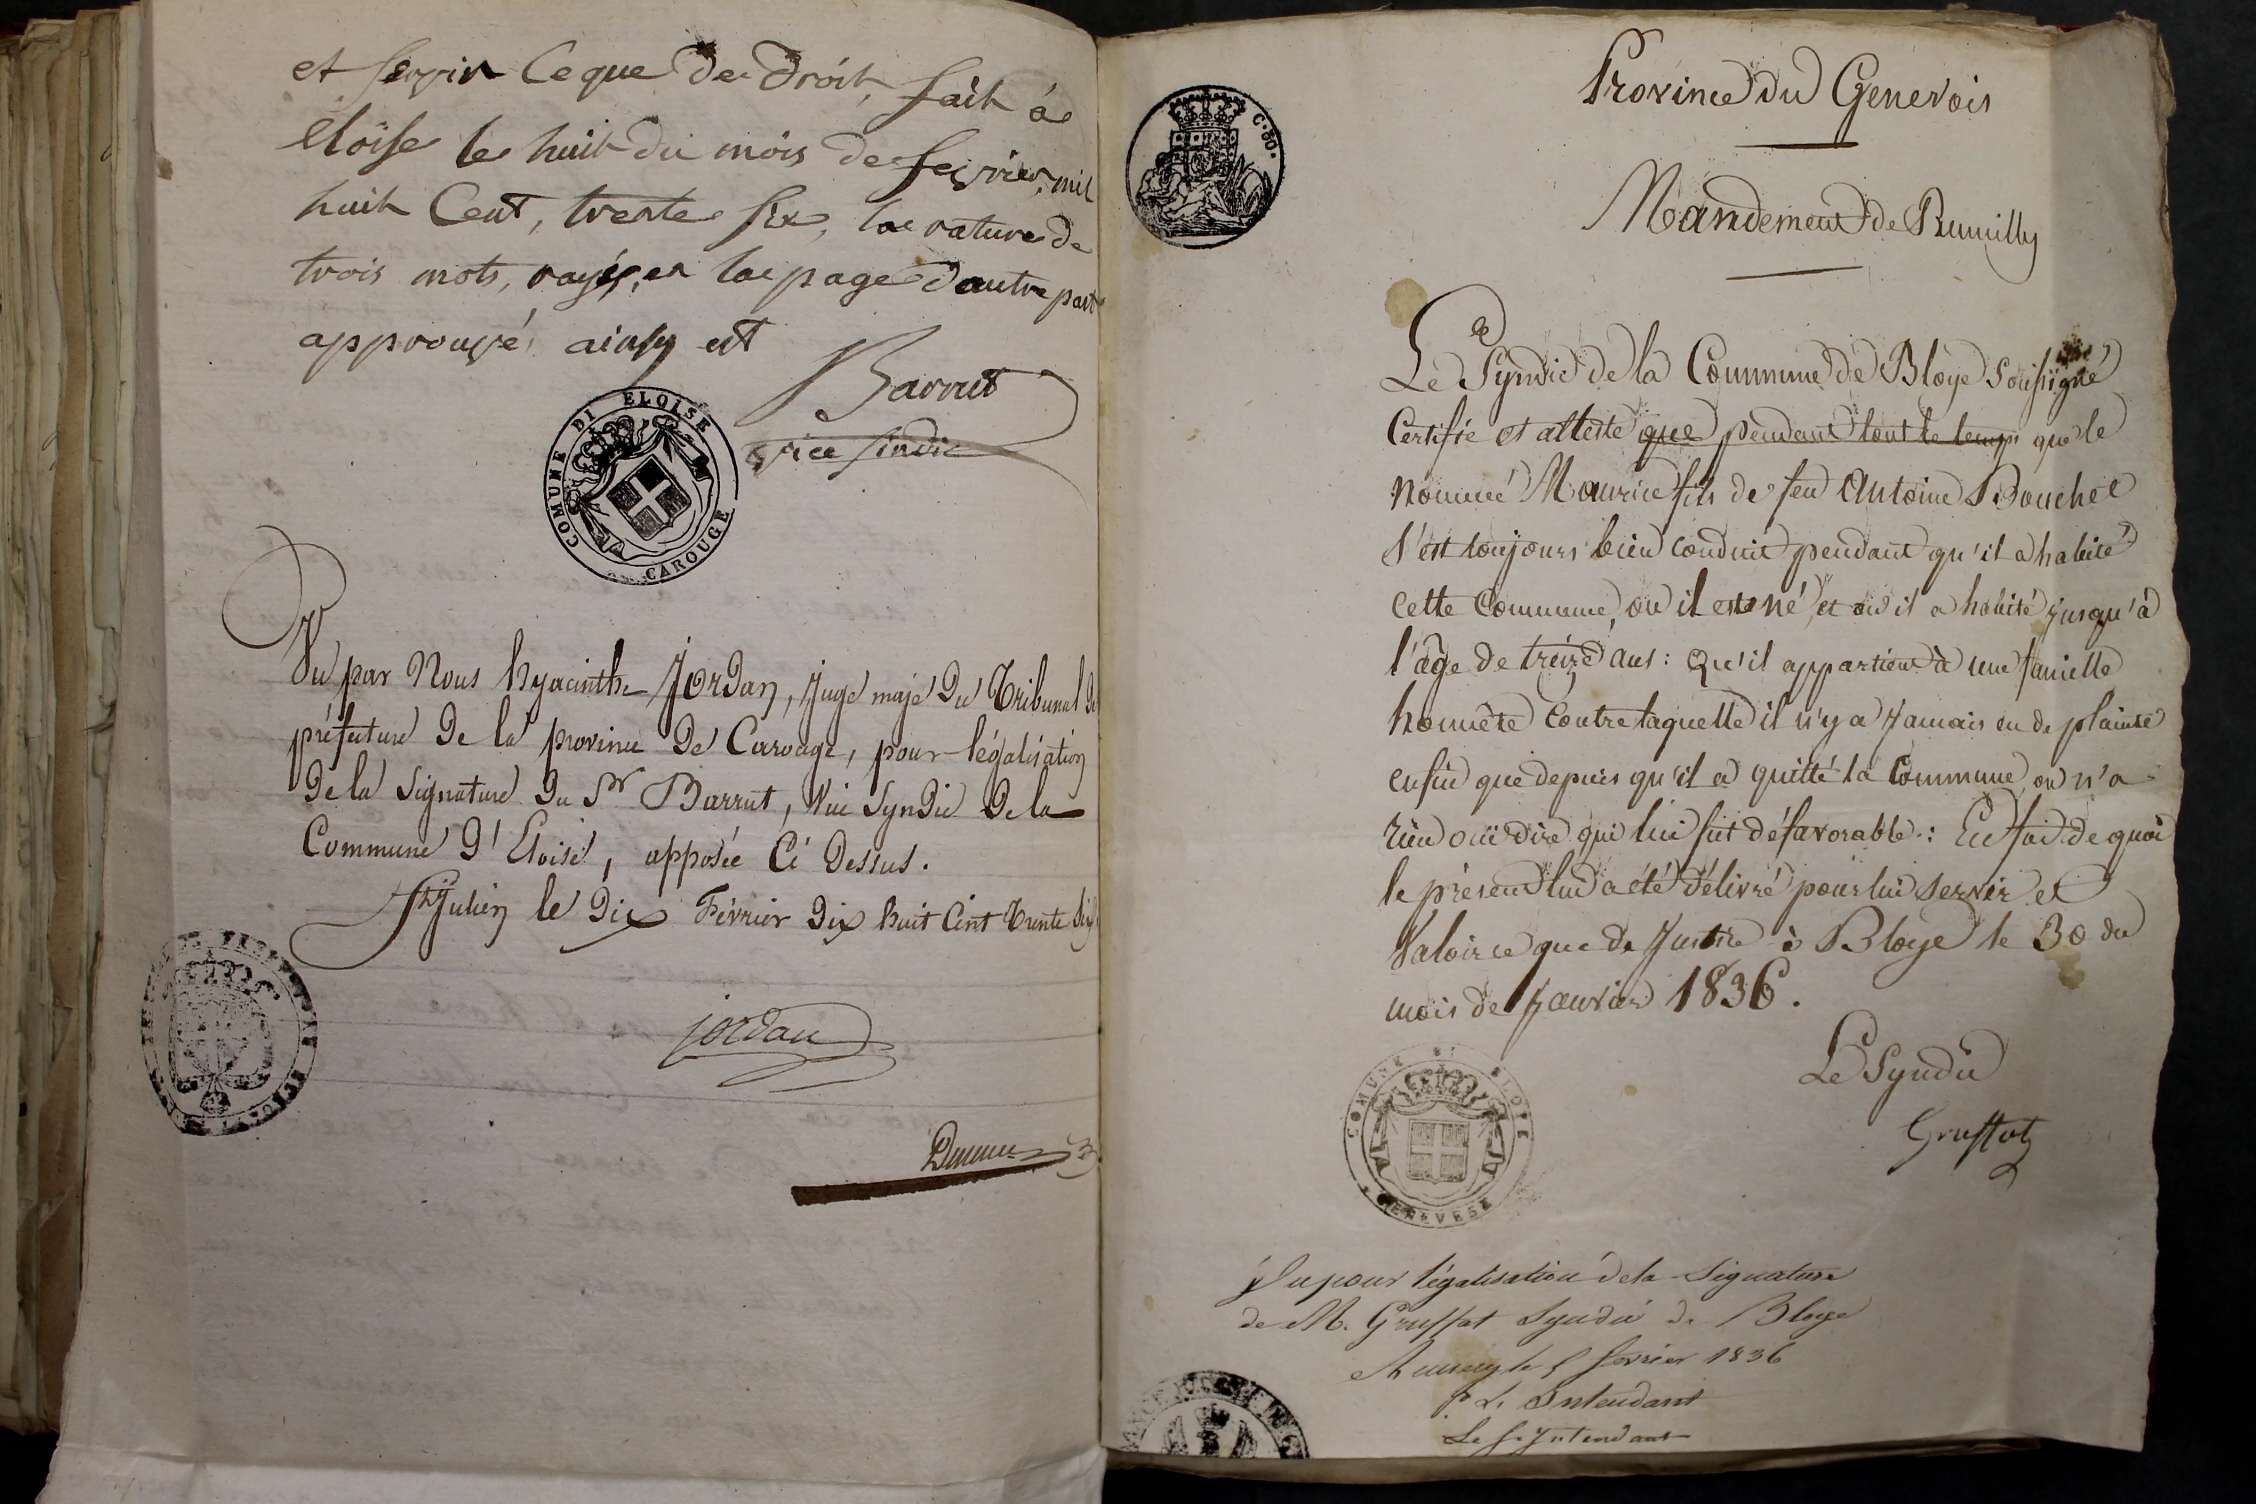 et servir Ceque de droit, fait à
éloise le huit du mois de fevrier, mil
huit Cent, trente six, la rature de
trois mots, rayés, en la page d'autre part
approuvé, ainsy est
Barrut
vice sindic
COMUNE DI ELOISE
CAROUGE
Vu par Nous hyacinthe Jordan, Juge maje du Tribunal de
préfecture de la province de Carouge, pour légalisation
de la signature du Sr Barrut, Vice Syndic de la
Commune d'Eloise, apposée Ci dessus.
St Julien le dix Février dix huit Cent Trente Six
jordan
C. 80.
Province du Genevois
Mandement de Rumilly
Le Syndic de la Commune de Bloye Soussigné
Certifie et atteste que pendant tout le temps que le
nommé Maurice fils de feu Antoine Bouchet
s'est toujours bien conduit pendant qu'il a habité
cette Commune, ou il est né, et ou il a habité jusqu'à
l'âge de treize ans: Qu'il appartient à une famille
honnête Contre laquelle il n'y a Jamais eu de plainte
enfin que depuis qu'il a quitté la Commune on n'a
rien ouï dire qui lui fut défavorable: En foi de quoi
le présent lui a été délivré pour lui servir et
Valoir ce que de Justice à Bloye le 30 du
mois de Janvier 1836.
Le Syndic
Gruffat
COMVNE DI BLOIE
GENEVESE
Vu pour légalisation de la Signature
de M. Gruffat Syndic de Bloye
Annecy le 5 février 1836
Pr L'Intendant
Le S. Intendant